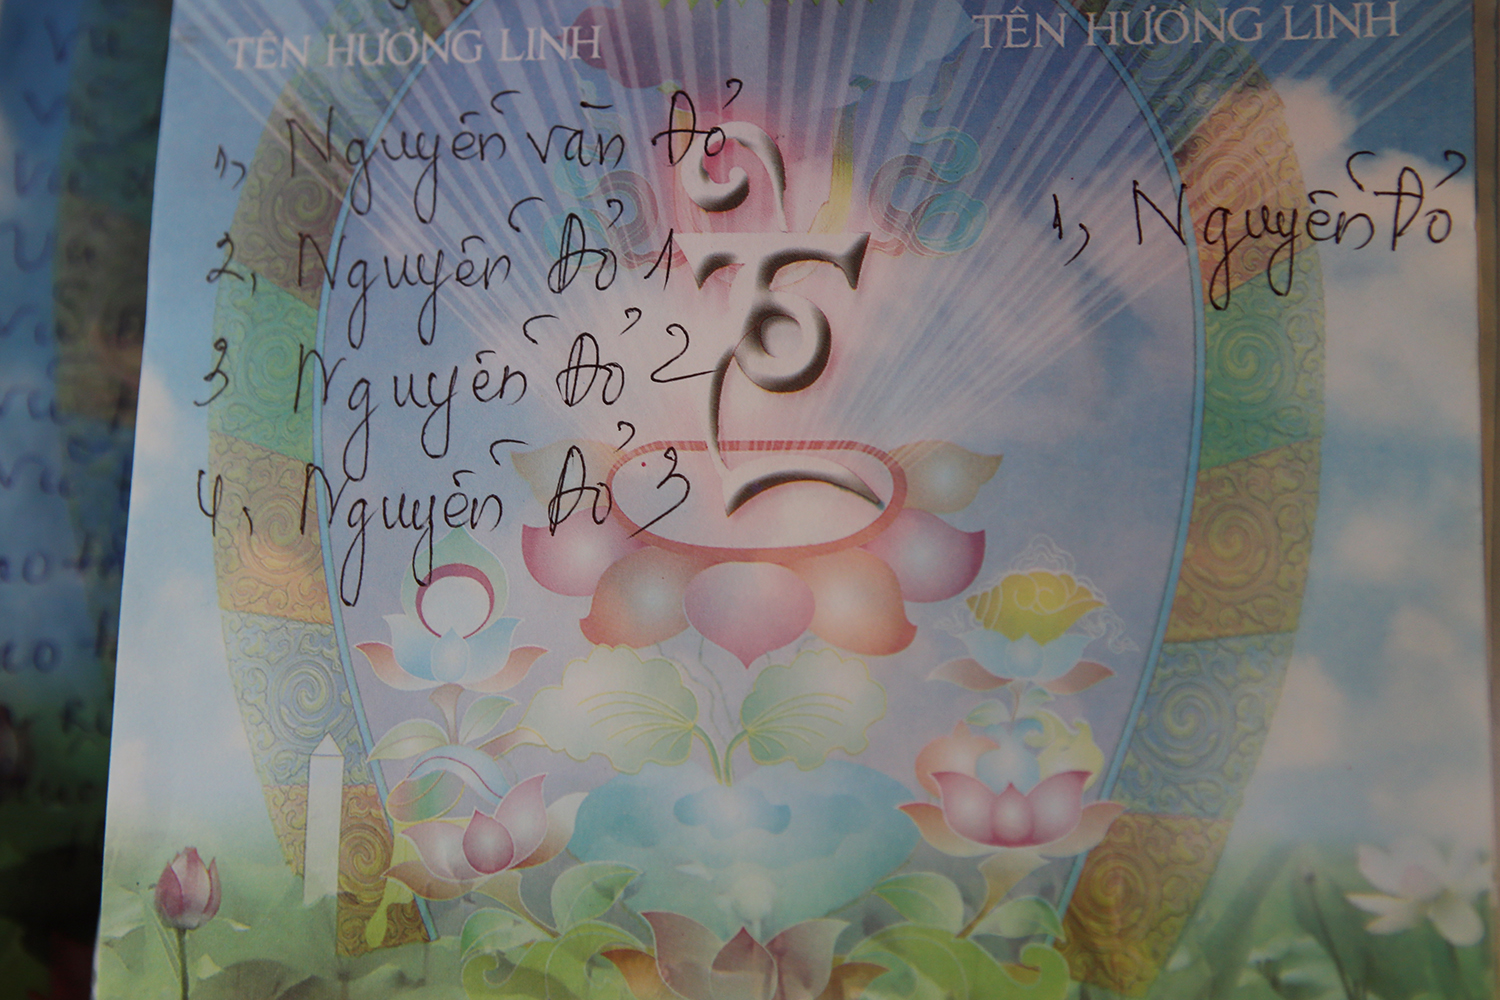 TÊN HƯƠNG LINH
1, Nguyễn văn Đỏ
2, Nguyễn Đỏ 1
3 Nguyễn Đỏ 2
4, Nguyễn Đỏ 3
TÊN HƯƠNG LINH
1, Nguyễn Đỏ